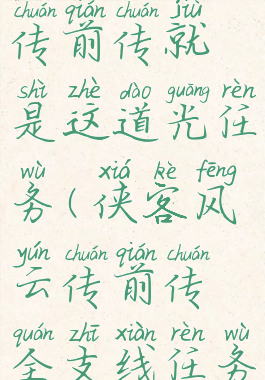 chuán qián chuán jiù
传前传就
shì zhè dào guāng rèn
是这道光任
wù xiá kè fēng
务(侠客风
yún chuán qián chuán
云传前传
quán zhī xiàn rèn wù
全支线任务